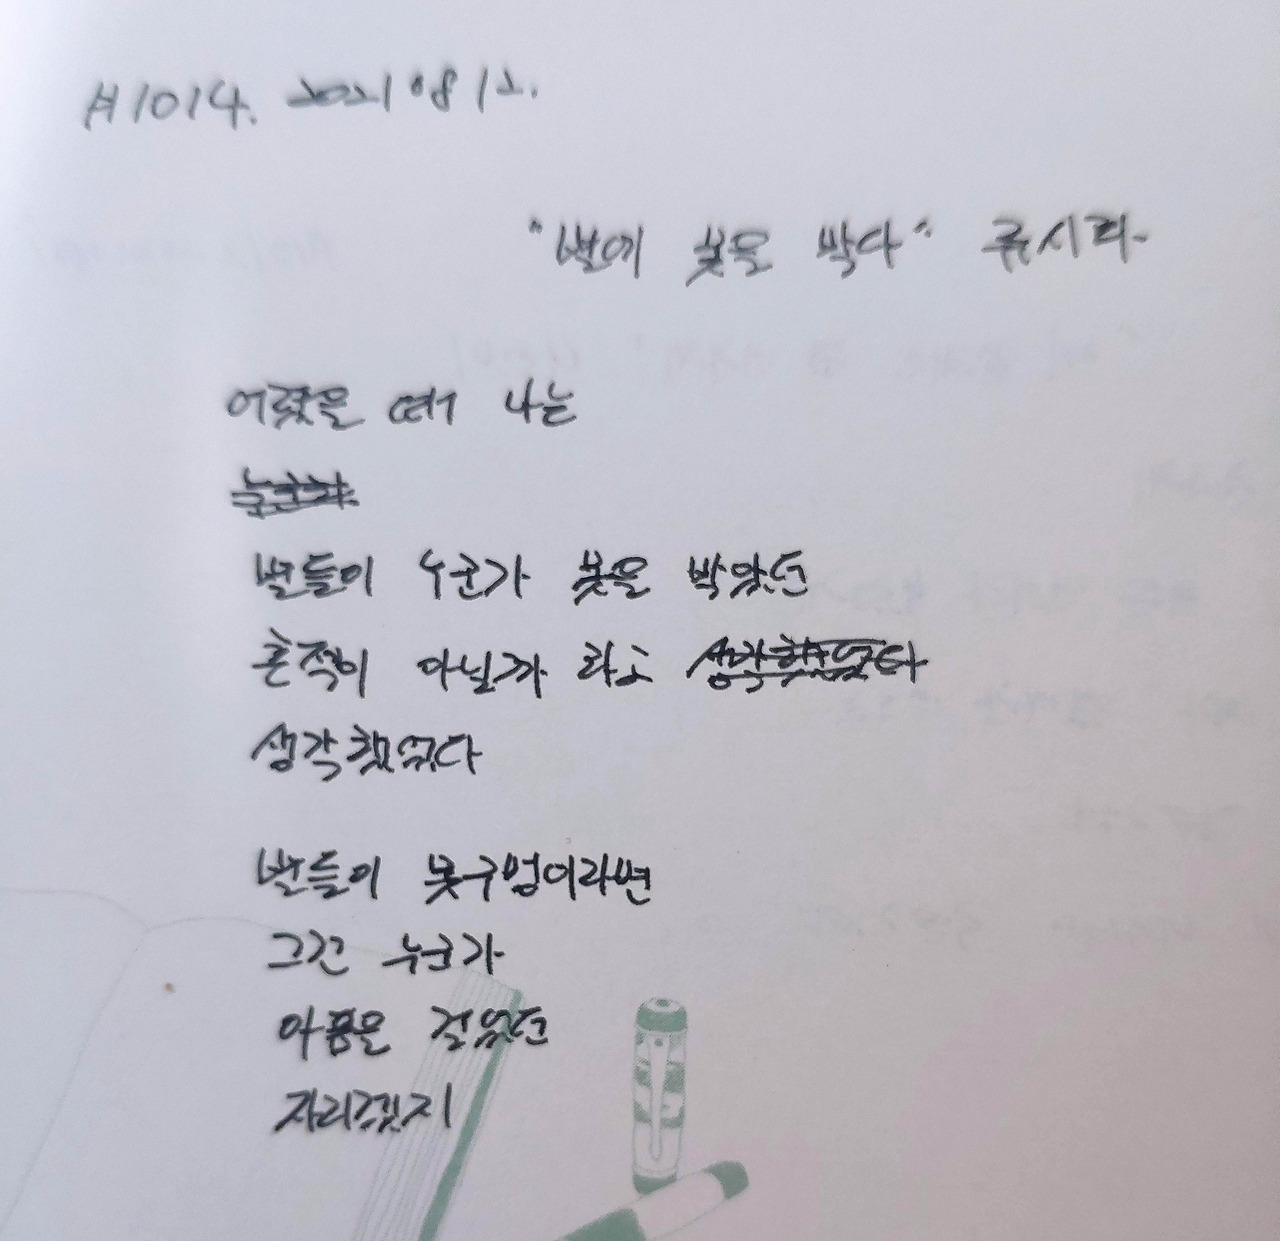 #1014. 2021 08 12.
"별에 못을 박다" 류시화
어렸을 때 나는
별들이 누군가 못을 박았던
흔적이 아닐까 라고 생각했었다
생각했었다
별들이 못구멍이라면
그건 누군가
아픔을 걸었던
자리겠지